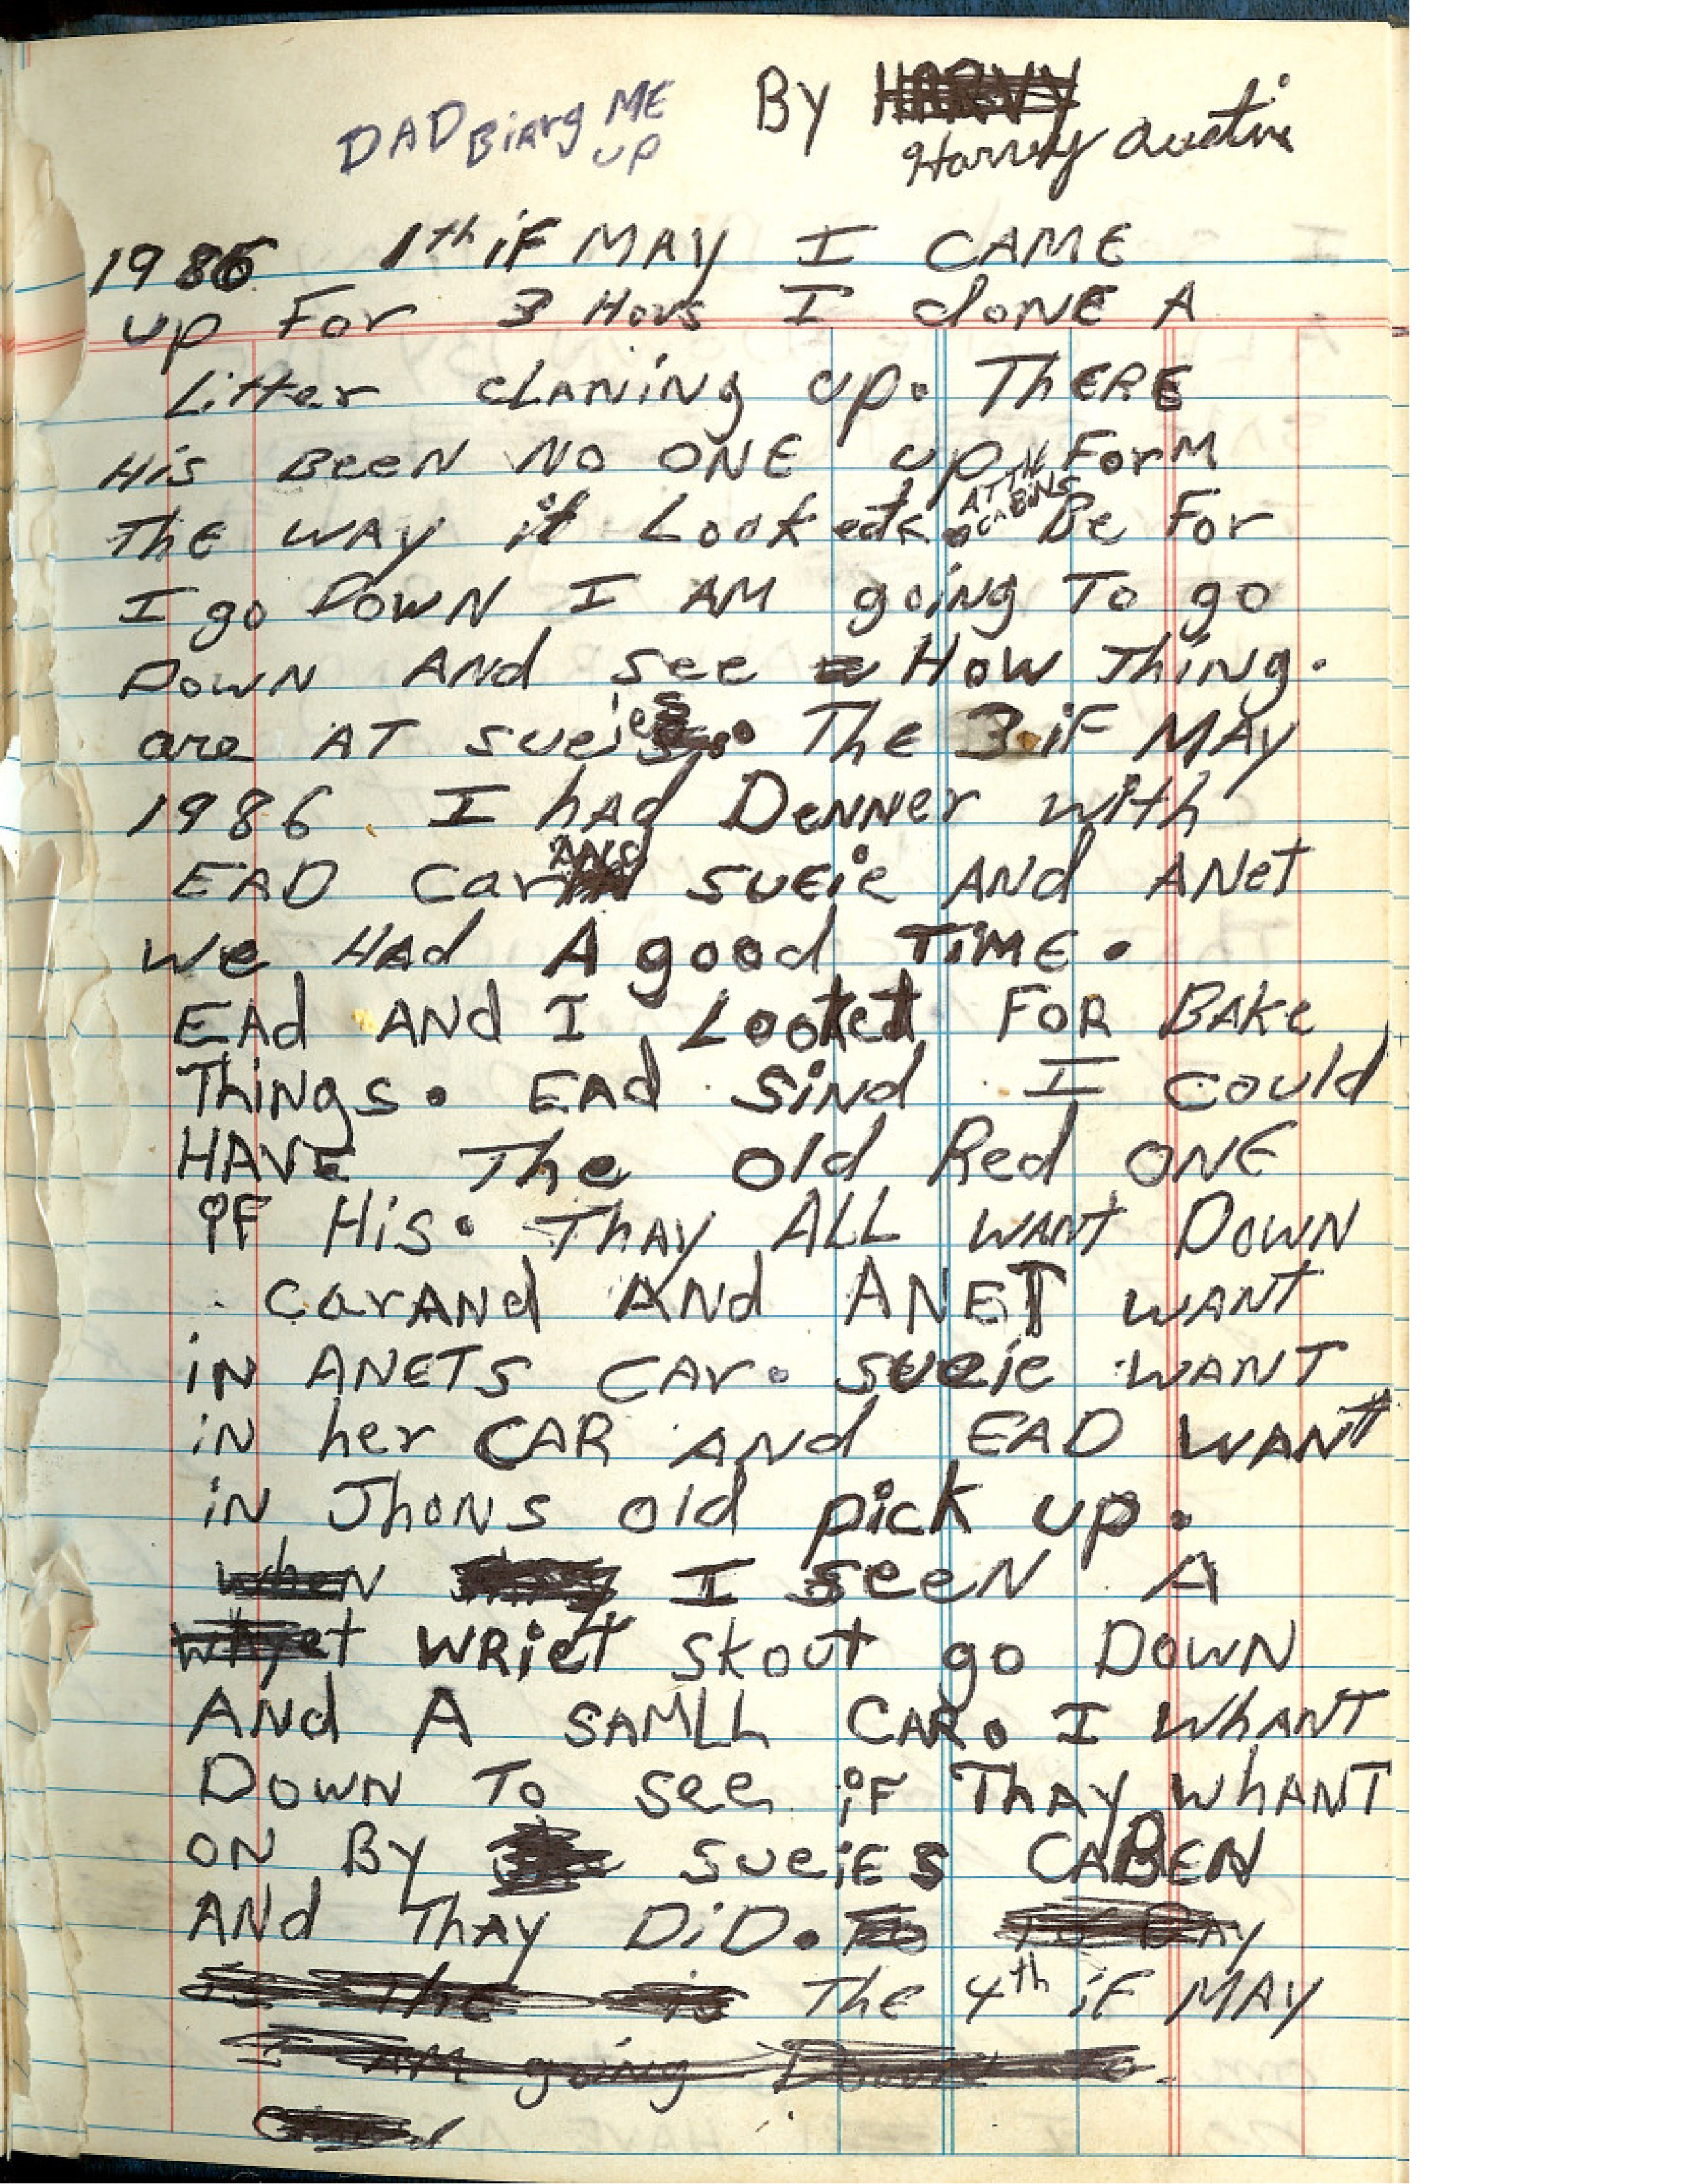 DAD Biarg ME UP By HARVY
Harvey Austin
1986 1th iF MAY I CAME
up For 3 Hovs I donE A
Litter cLANiNg up. ThERE
His BeeN NO ONE up ForM
The WAY it Looked AT TH CABiNS Be For
I go DowN I AM going To go
DowN AND see How Thing.
are AT sueies. The 3 iF MAY
1986 I hAd DeNNer with
EAD Car ANd suEie ANd ANet
we HAd A good TiME.
EAd ANd I Looted FOR BAKe
Things. EAd SiNd I could
HAVE The old Red ONE
iF His. ThAy ALL WANT DOWN
carANd ANd ANET WANT
iN ANETS CAr. sueie WANT
iN her CAR ANd EAD WANT
iN JhoNS old pick up.
when I seeN A
whyet WRiet skout go DOWN
ANd A SAMLL CAR. I WhANT
DowN To see iF ThAy WhANT
ON By sueiES CABEN
ANd ThAy DiD. To To DAy
is The is The 4th iF MAY
I AM going DowN to.